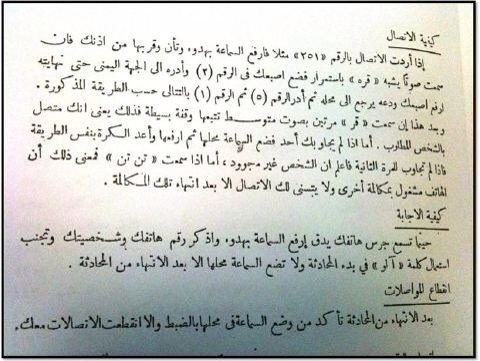 كيفية الاتصال
إذا أردت الاتصال بالرقم «٢٥١» مثلا فارفع السماعة بهدوء وتأن وقربها من اذنك فان
سمعت صوتاً يشبه «قره» باستمرار فضع اصبعك في الرقم (٢) وأدره الى الجهة اليمنى حتى نهايته
ارفع اصبعك ودعه يرجع الى محله ثم أدر الرقم (٥) ثم الرقم (١) بالتتالي حسب الطريقة المذكورة .
وبعد هذا إن سمعت «قر» مرتين بصوت متوسط تتبعها وقفة بسيطة فذلك يعنى انك متصل
بالشخص المطلوب . أما اذا لم يجاوبك أحد فضع السماعة محلها ثم ارفعها وأعد الكرة بنفس الطريقة
فاذا لم تجاوب للمرة الثانية فاعلم ان الشخص غير موجود ، أما اذا سمعت « تن تن » فمعنى ذلك أن
الهاتف مشغول بمكالمة أخرى ولا يتسنى لك الاتصال الا بعد انتهاء تلك المكالمة .
كيفية الاجابة
حينما تسمع جرس هاتفك يدق إرفع السماعة بهدوء واذكر رقم هاتفك وشخصيتك وتجنب
استعمال كلمة « آلو » في بدء المحادثة ولا تضع السماعة محلها الا بعد الانتهاء من المحادثة .
انقطاع المواصلات
بعد الانتهاء من المحادثة تأكد من وضع السماعة في محلها بالضبط والا انقطعت الاتصالات معك.